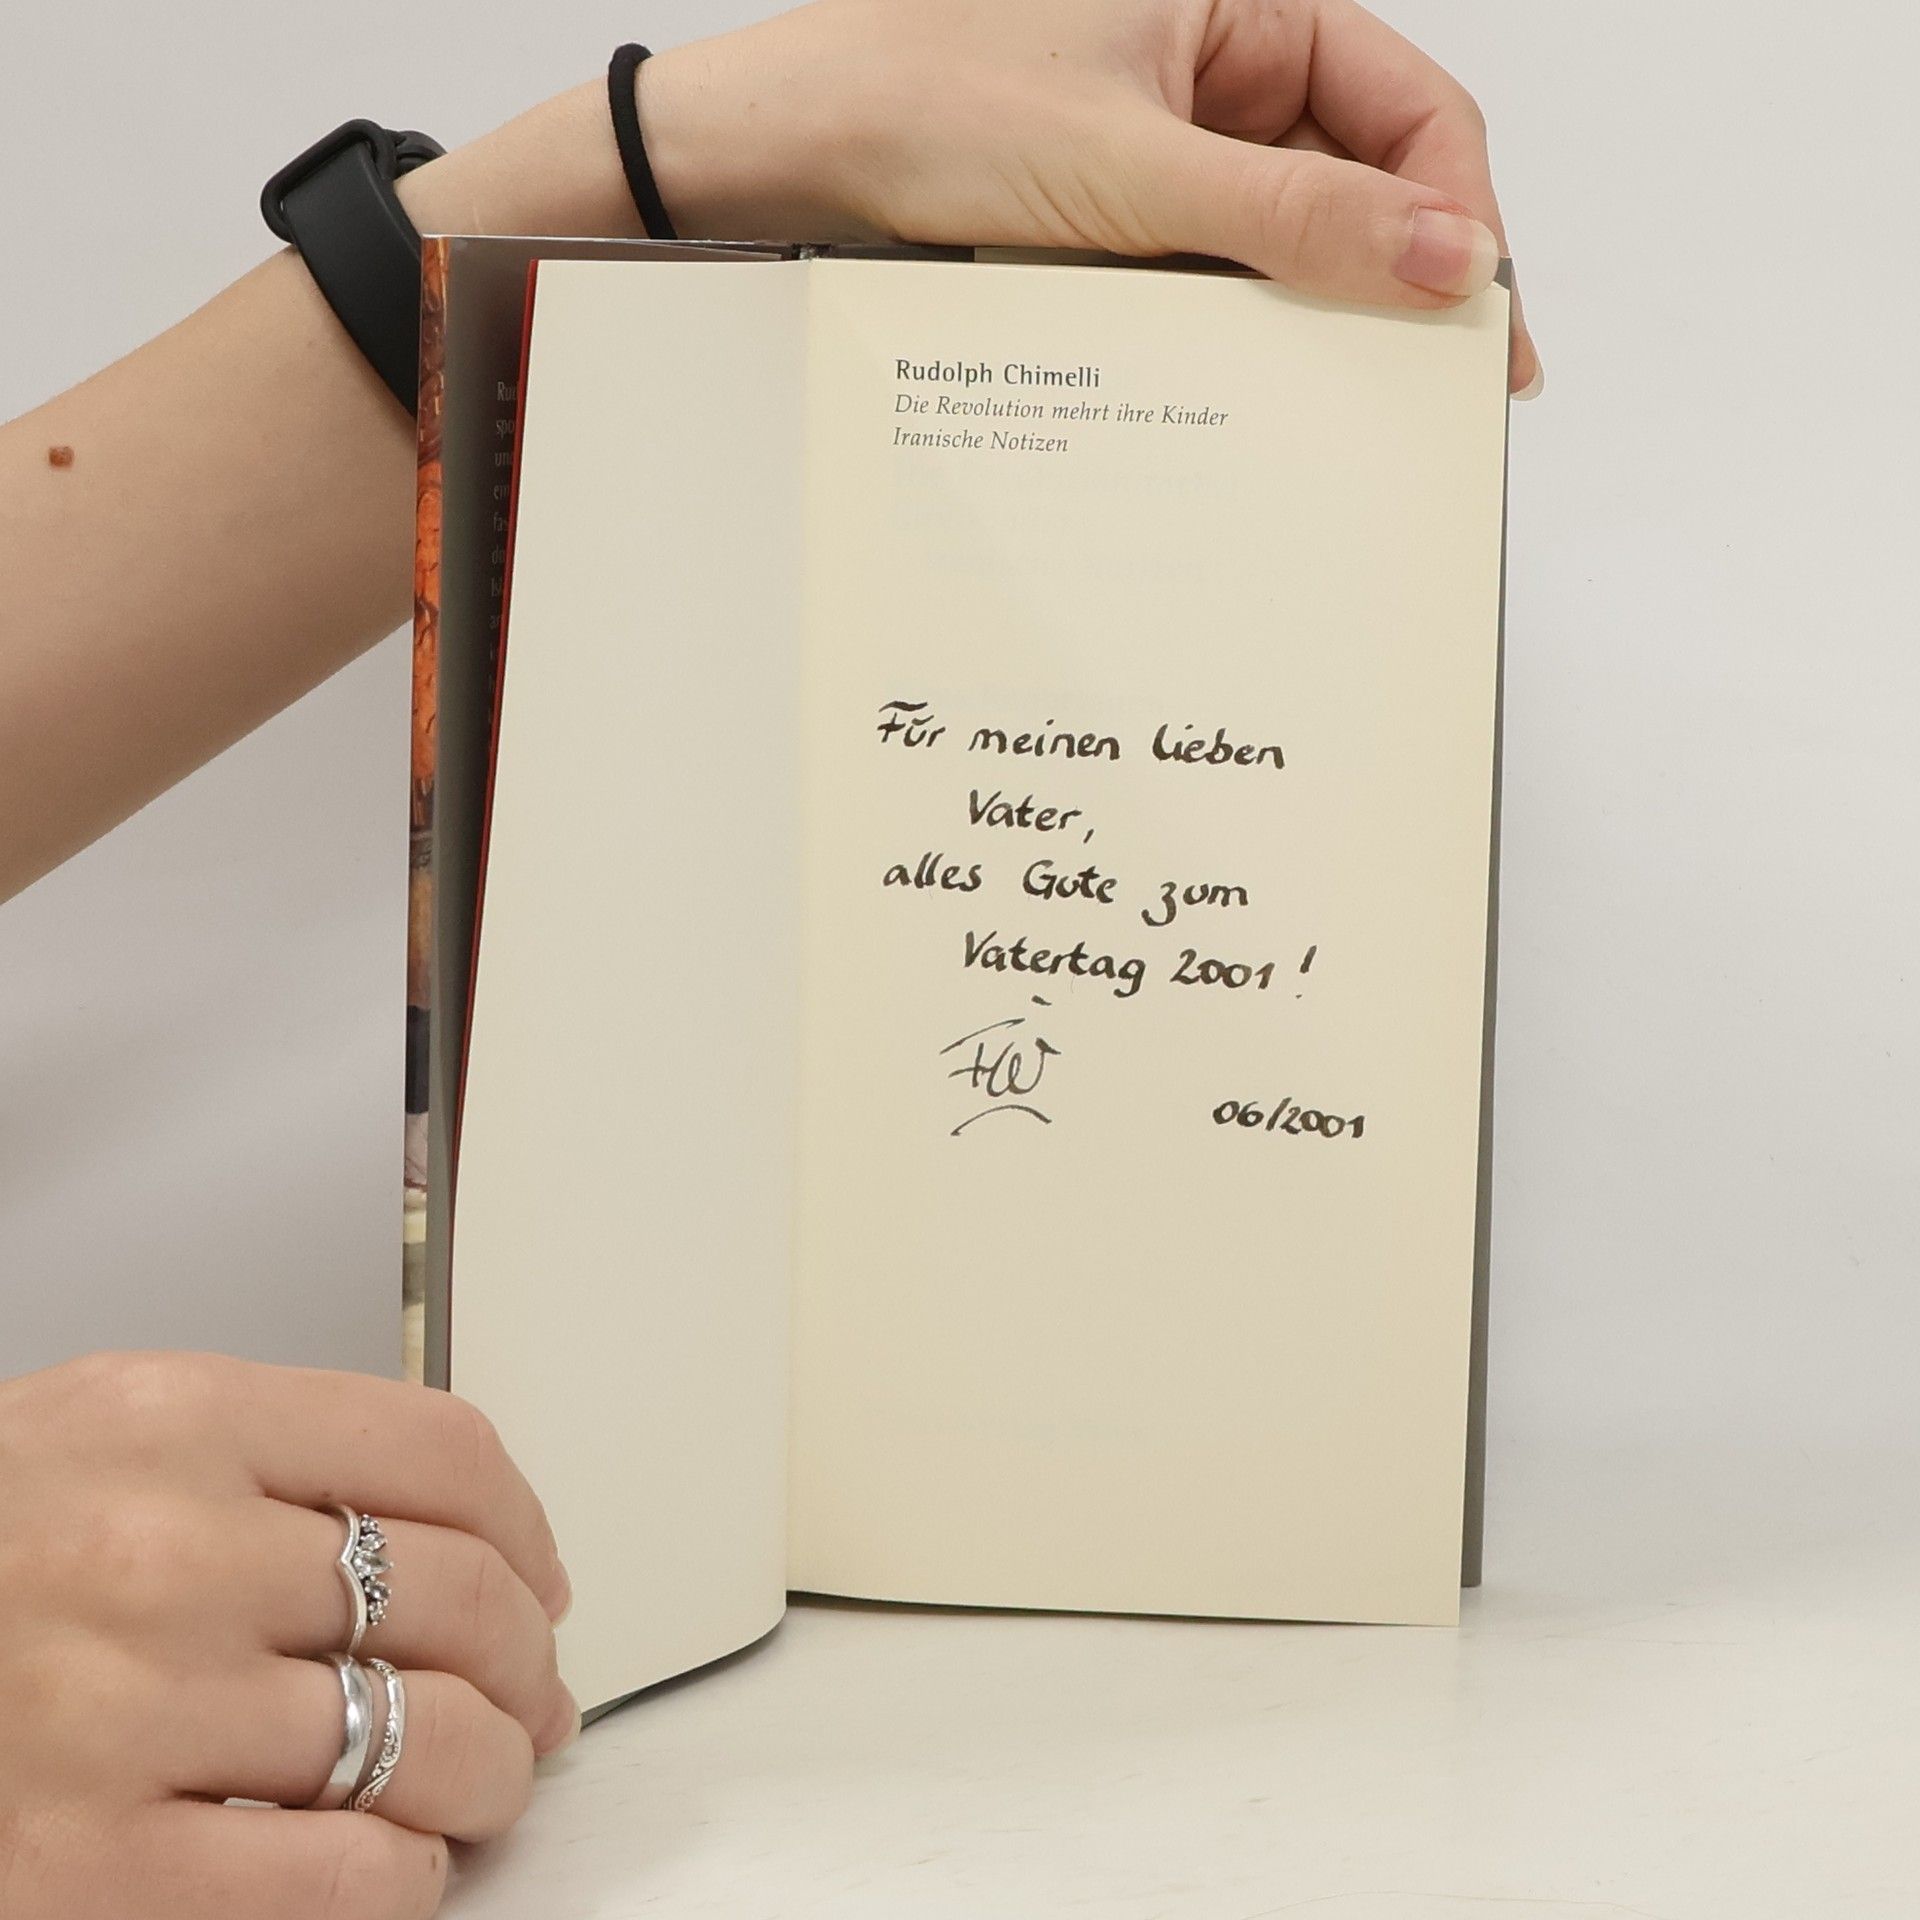 Rudolph Chimelli
Die Revolution mehrt ihre Kinder
Iranische Notizen
Für meinen lieben
Vater,
alles Gute zum
Vatertag 2001 !
FW
06/2001